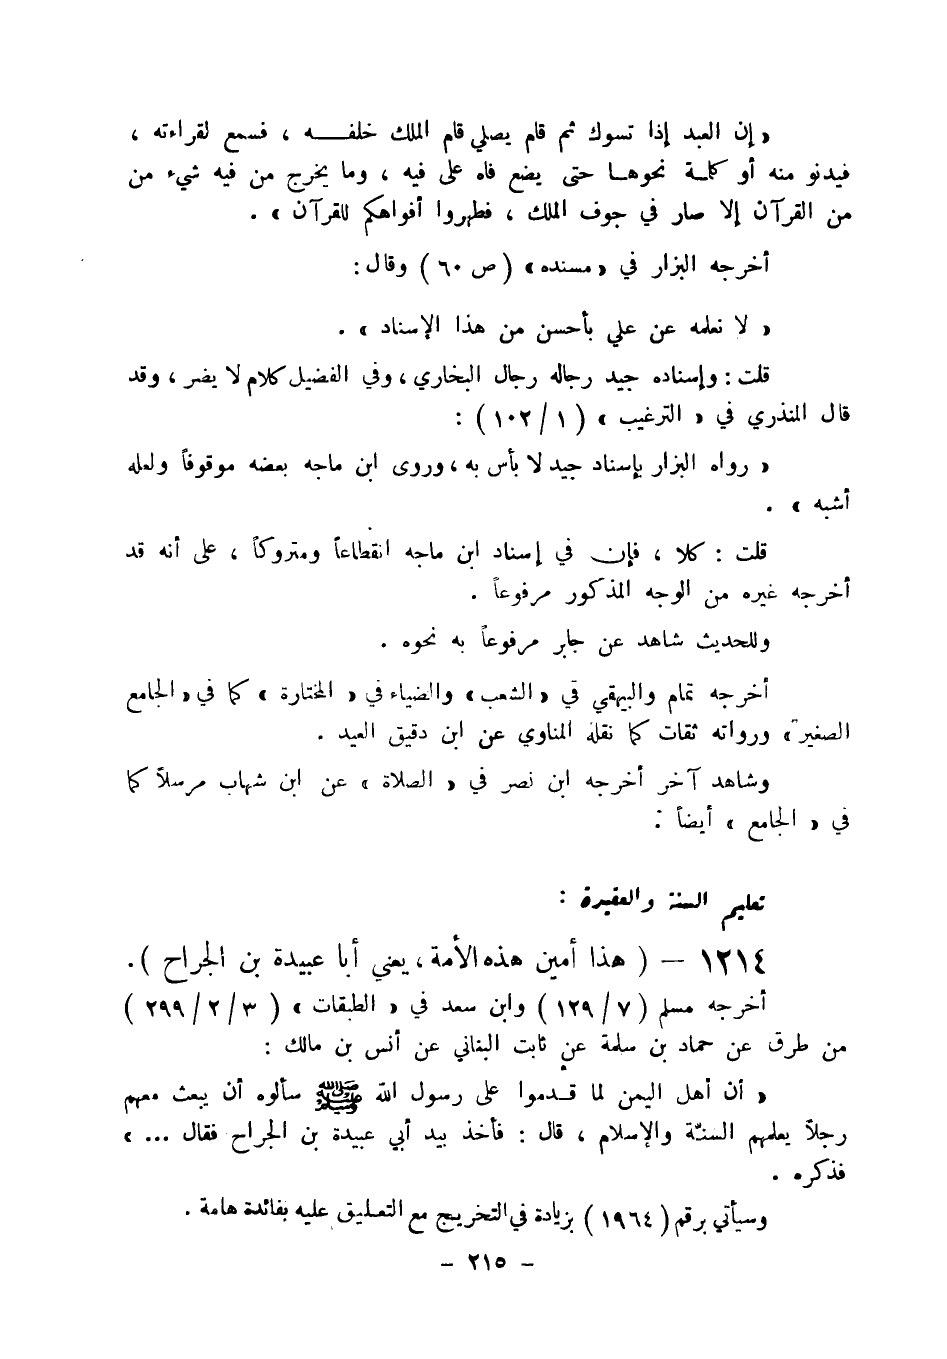 « إن العبد إذا تسوك ثم قام يصلي قام الملك خلفـــه ، فسمع لقراءته ،
فيدنو منه أو كلمـة نحوهـا حتى يضع فاه على فيه ، وما يخرج من فيه شيء من
من القرآن إلا صار في جوف الملك ، فطهروا أفواهكم للقرآن » .
أخرجه البزار في « مسنده » ( ص ٦٠ ) وقال :
« لا نعلمه عن علي بأحسن من هذا الإسناد » .
قلت : وإسناده جيد رجاله رجال البخاري ، وفي الفضيل كلام لا يضر ، وقد
قال المنذري في « الترغيب » ( ١ / ١٠٢ ) :
« رواه البزار بإسناد جيد لا بأس به ، وروى ابن ماجه بعضه موقوفاً ولعله
أشبه » .
قلت : كلا ، فإن في إسناد ابن ماجه انقطاعاً ومتروكاً ، على أنه قد
أخرجه غيره من الوجه المذكور مرفوعاً .
وللحديث شاهد عن جابر مرفوعاً به نحوه .
أخرجه تمام والبيهقي في « الشعب » والضياء في « المختارة » كما في « الجامع
الصغير » ورواته ثقات كما نقله المناوي عن ابن دقيق العيد .
وشاهد آخر أخرجه ابن نصر في « الصلاة » عن ابن شهاب مرسلاً كما
في « الجامع » أيضاً .
تعليم السنة والعقيدة :
١٢١٤ – ( هذا أمين هذه الأمة ، يعني أبا عبيدة بن الجراح ) .
أخرجه مسلم ( ٧ / ١٢٩ ) وابن سعد في « الطبقات » ( ٣ / ٢ / ٢٩٩ )
من طرق عن حماد بن سلمة عن ثابت البناني عن أنس بن مالك :
« أن أهل اليمن لما قـدموا على رسول الله ﷺ سألوه أن يبعث معهم
رجلاً يعلمهم السنّة والإسلام ، قال : فأخذ بيد أبي عبيدة بن الجراح فقال ... »
فذكره .
وسيأتي برقم ( ١٩٦٤ ) بزيادة في التخريج مع التعليق عليه بفائدة هامة .
– ٢١٥ –